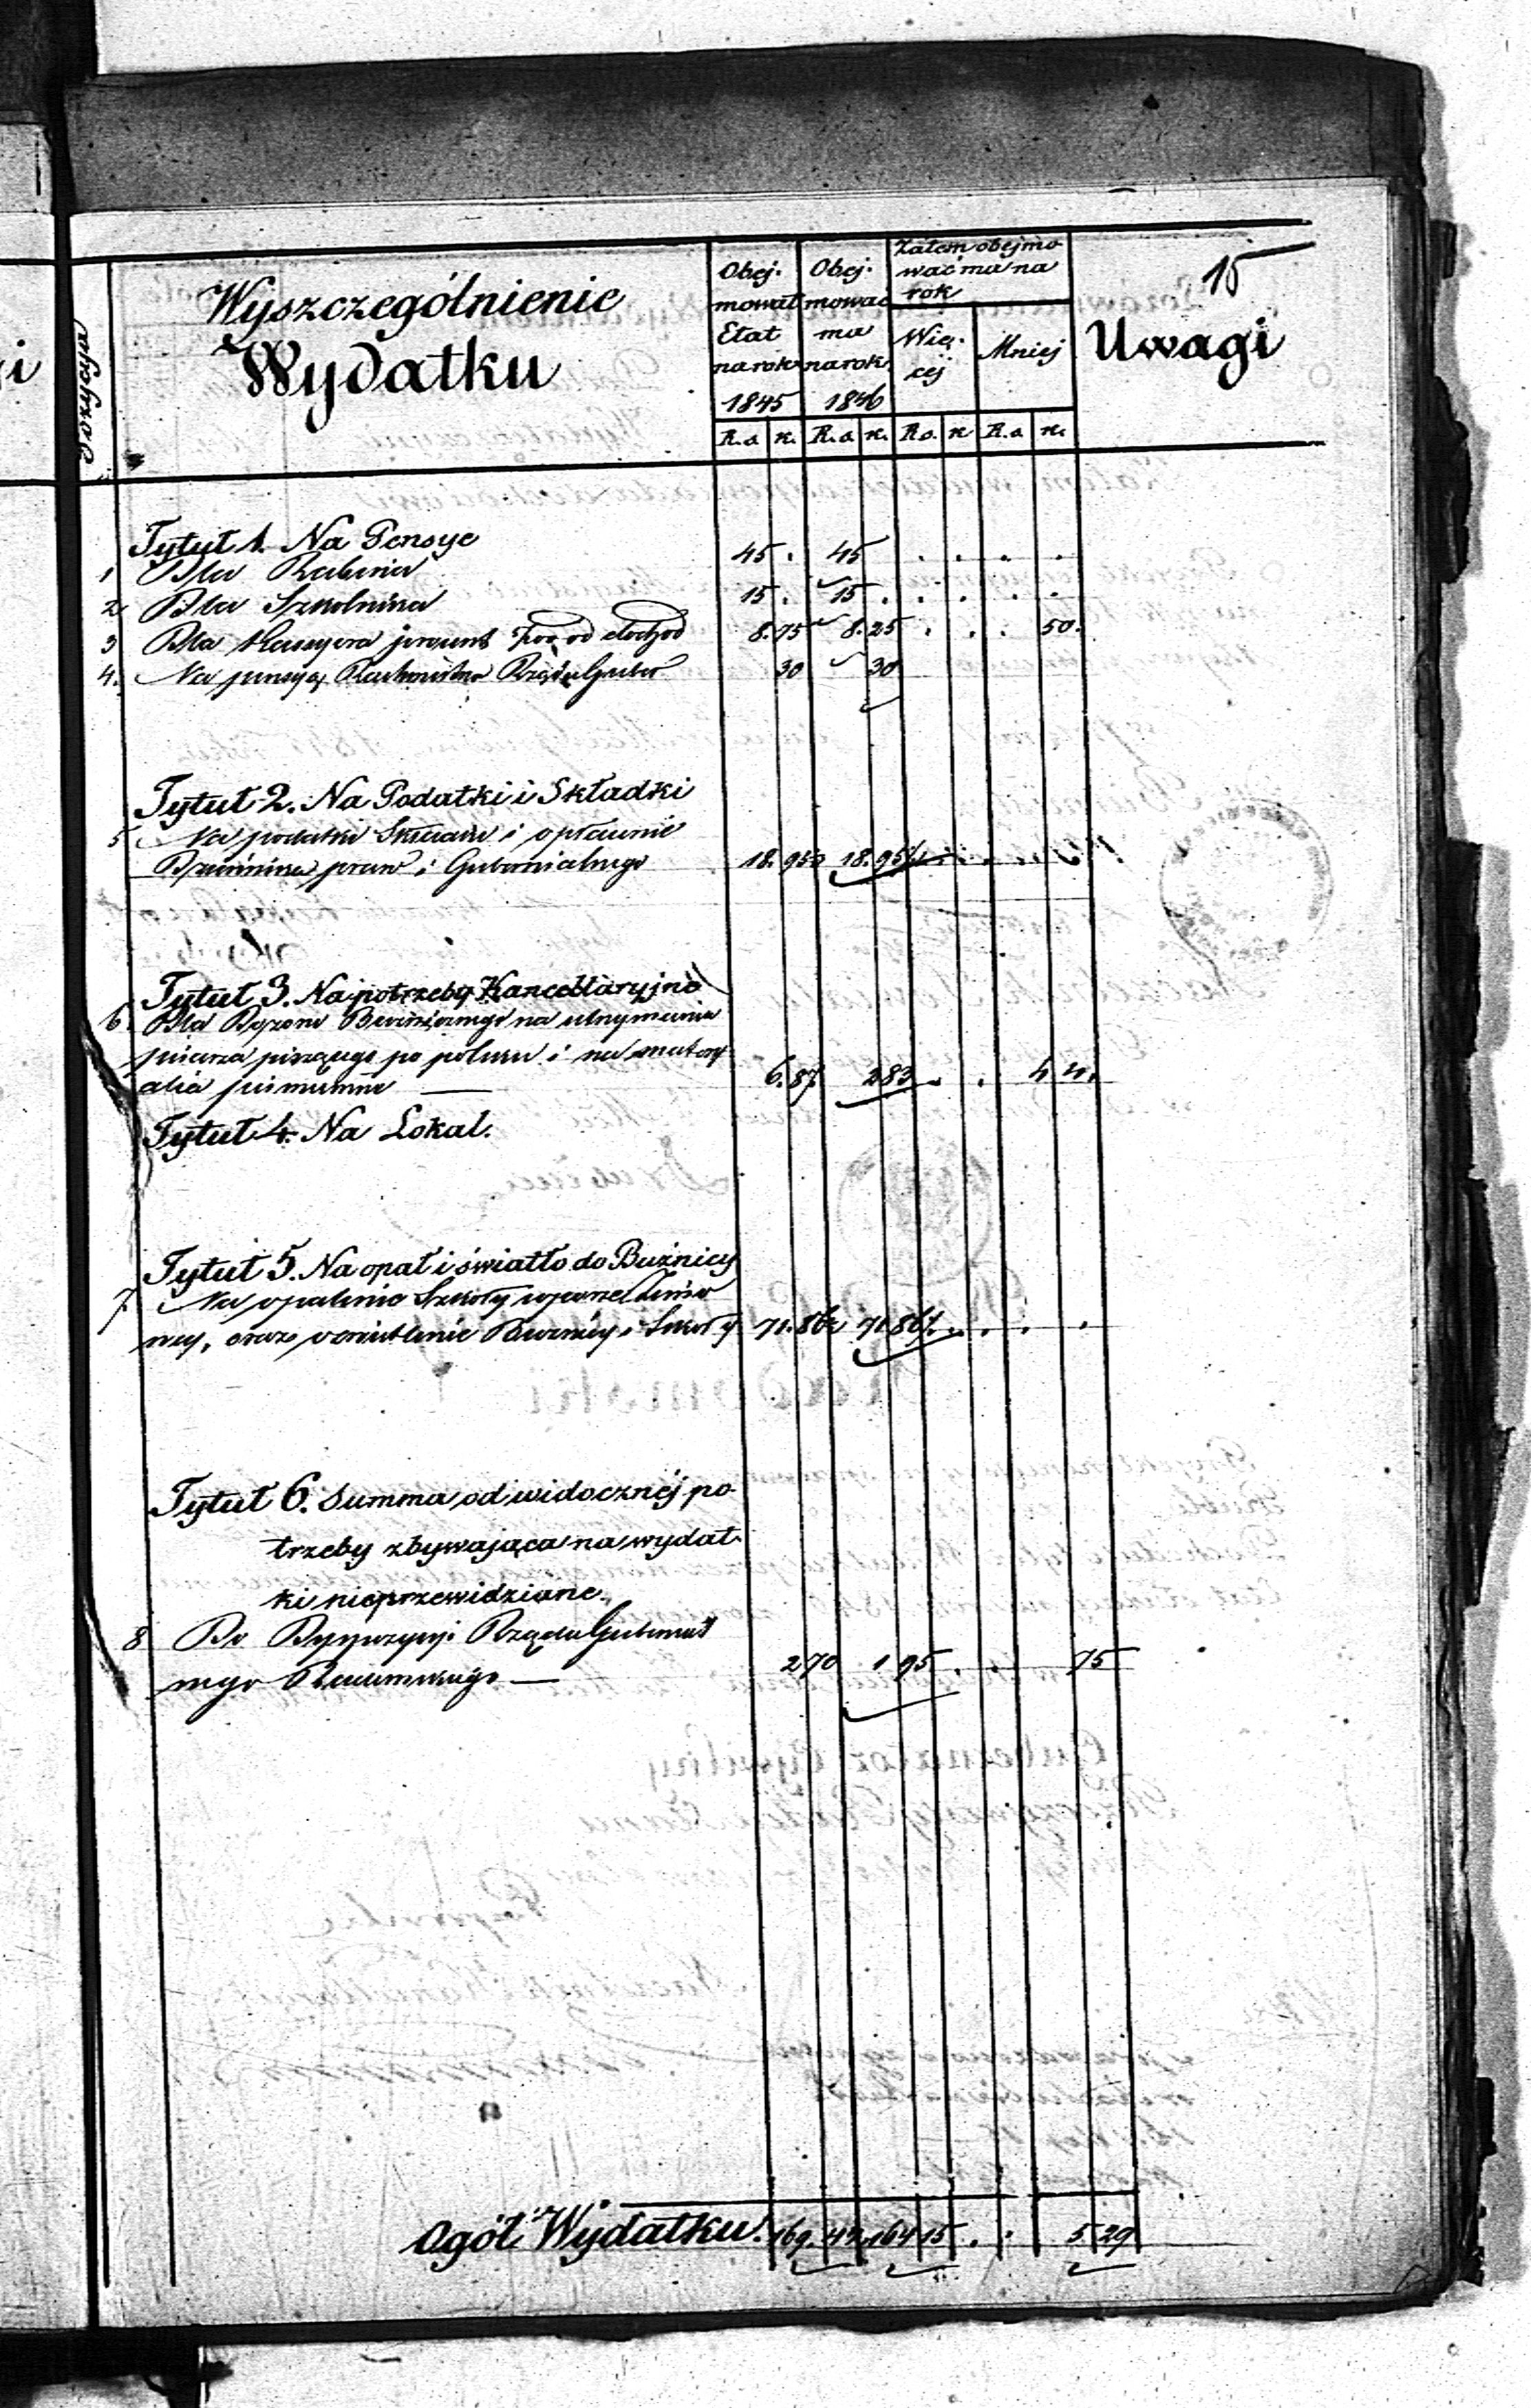 15
Pozycya
Wyszczególnienie
Wydatku
Obej-
mował
Etat
na rok
1845
Obej-
mować
ma
na rok
1846
Zatem obejmo
wać ma na
rok
Wię-
cej
Mniej
Uwagi
R.a k. R.a k. R.a. k R.a k.
Tytuł 1. Na Pensye
1 Dla Rabina 45 . 45 . . . .
2 Dla Szkolnika 15 . 15 . . . . .
3 Dla Kassyera procent od dochod 8.75 8.25 . . . 50.
4. Na pensyą Rachmistrza Rządu Guber 30 30
Tytuł 2. Na Podatki i Składki
5 Na podatki Składki i opłacenie
Dziennika praw i Gubernialnego 18.95½ 18.95½ . . . .
Tytuł 3. Na potrzeby Kancellaryjne
6. Dla Dozoru Bóżniczego na utrzymanie
pisarza piszącego po polsku i na matery
alia piśmienne — 6.87 2 83 . . 4 4.
Tytuł 4. Na Lokal.
Tytuł 5. Na opał i światło do Buźnicy
7. Na opalenie Szkoły w porze Zimo
wej, oraz oświetlenie Buźnicy i Szkoły 71.86½ 71.86½ . . . .
Tytuł 6. Summa od widocznéj po-
trzeby zbywająca na wydat-
ki nieprzewidziane.
8 Do Dyspozycyi Rządu Gubernial
nego Radomskiego — 2 70 1 95 . . 75
Ogół Wydatku. 169. 44 164 15 . . 5 29